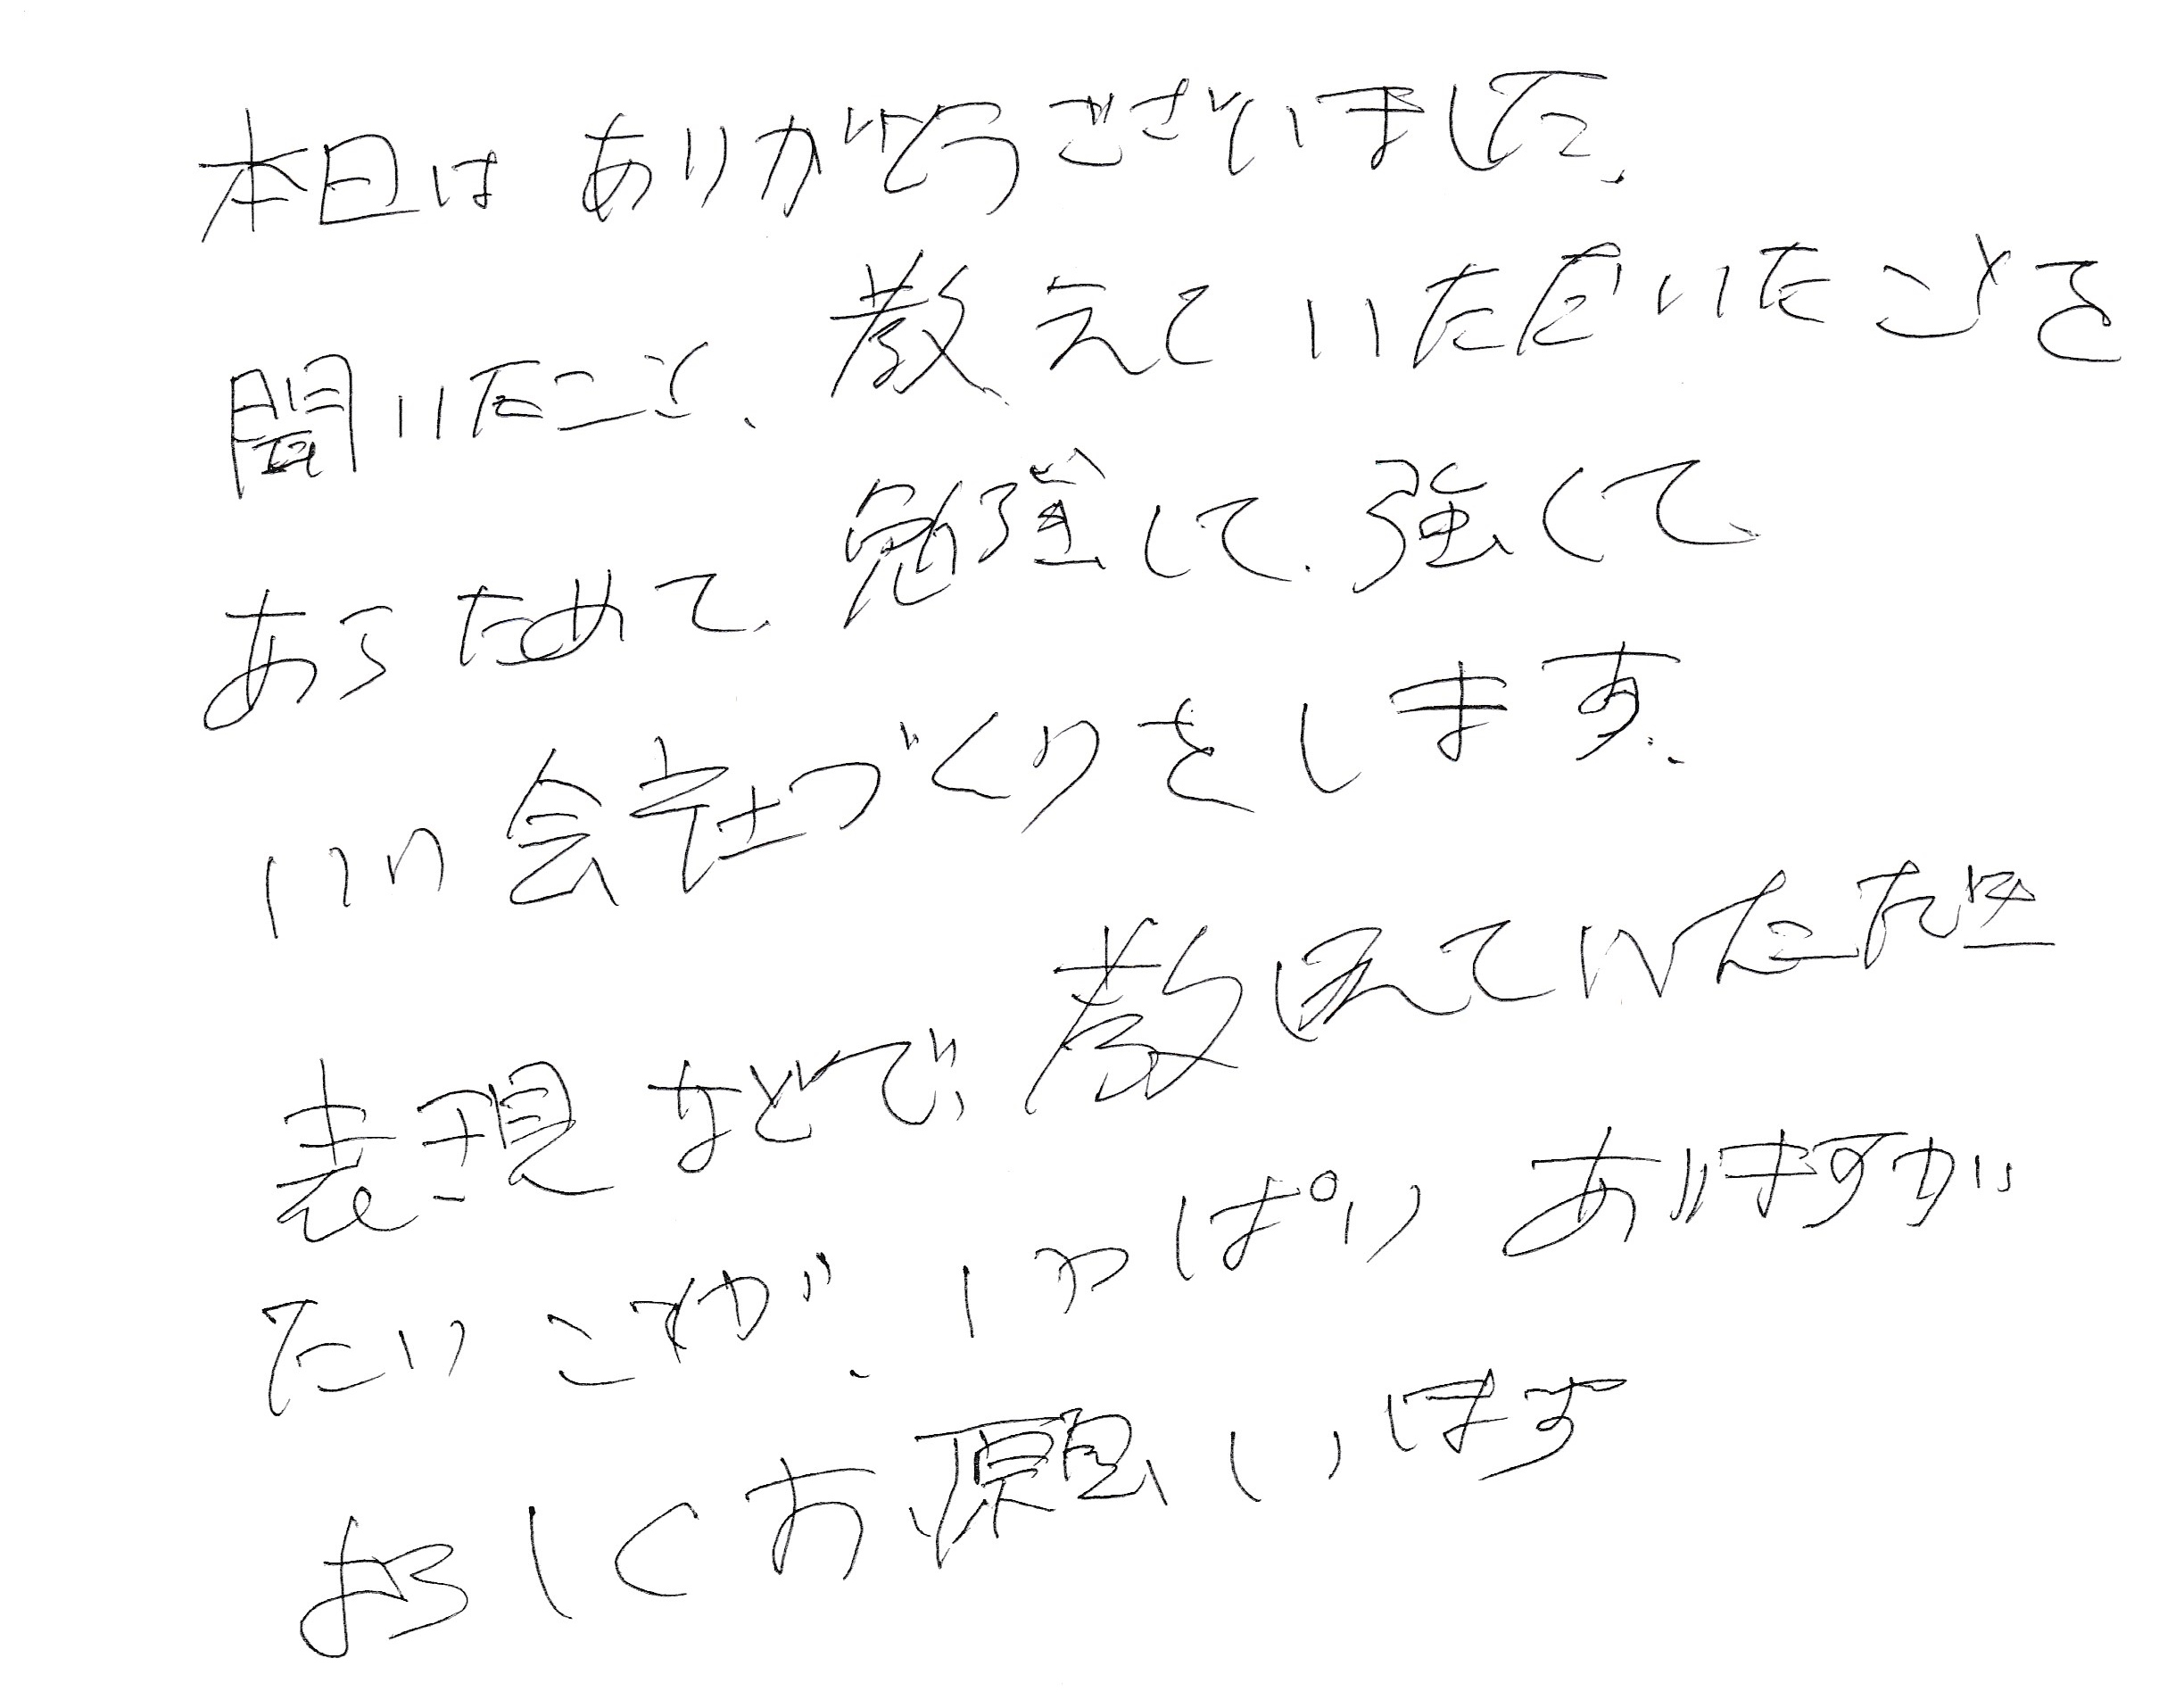 本日はありがとうございました、
聞いたこと、教えていただいたことを
あらためて、勉強して、強くて
いい会社づくりをします。
表現などで、教えていただき
たいことが、いっぱいありますが
よろしくお願いします